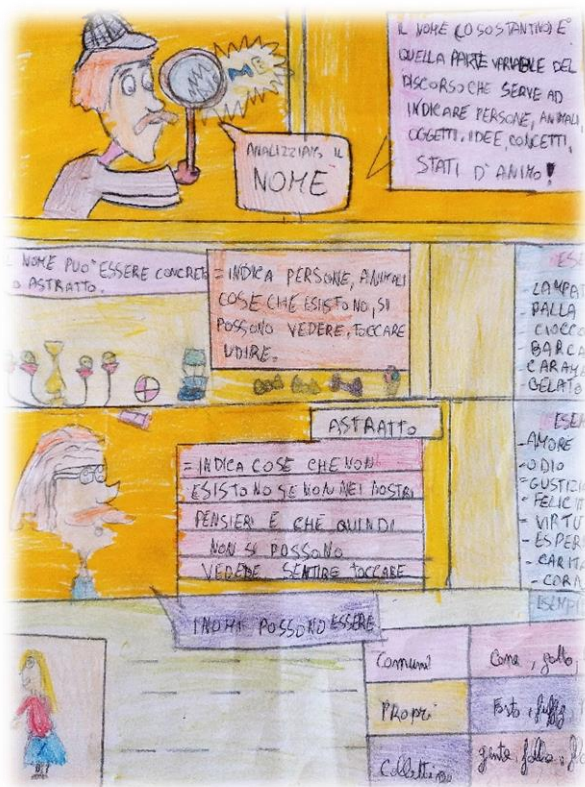 IL NOME (O SOSTANTIVO) E'
QUELLA PARTE VARIABILE DEL
DISCORSO CHE SERVE AD
INDICARE PERSONE, ANIMALI
OGGETTI, IDEE, CONCETTI,
STATI D'ANIMO!
ANALIZZIAMO IL
NOME
NOME PUO' ESSERE CONCRETO
O ASTRATTO.
= INDICA PERSONE, ANIMALI
COSE CHE ESISTONO, SI
POSSONO VEDERE, TOCCARE
UDIRE.
ESE
- LAMPA
- PALLA
- CIOCC
- BARCA
- CARAM
- GELATO
ASTRATTO
= INDICA COSE CHE NON
ESISTONO SE NON NEI NOSTRI
PENSIERI E CHE QUINDI
NON SI POSSONO
VEDERE SENTIRE TOCCARE
ESEM
- AMORE
- ODIO
- GUSTIZI
- FELICIT
- VIRTU
- ESPERI
- CARIT
- CORA
ESEMPI
I NOMI POSSONO ESSERE
Comuni
Cane, gatto,
PRopri
Collettivi
gente, folla,